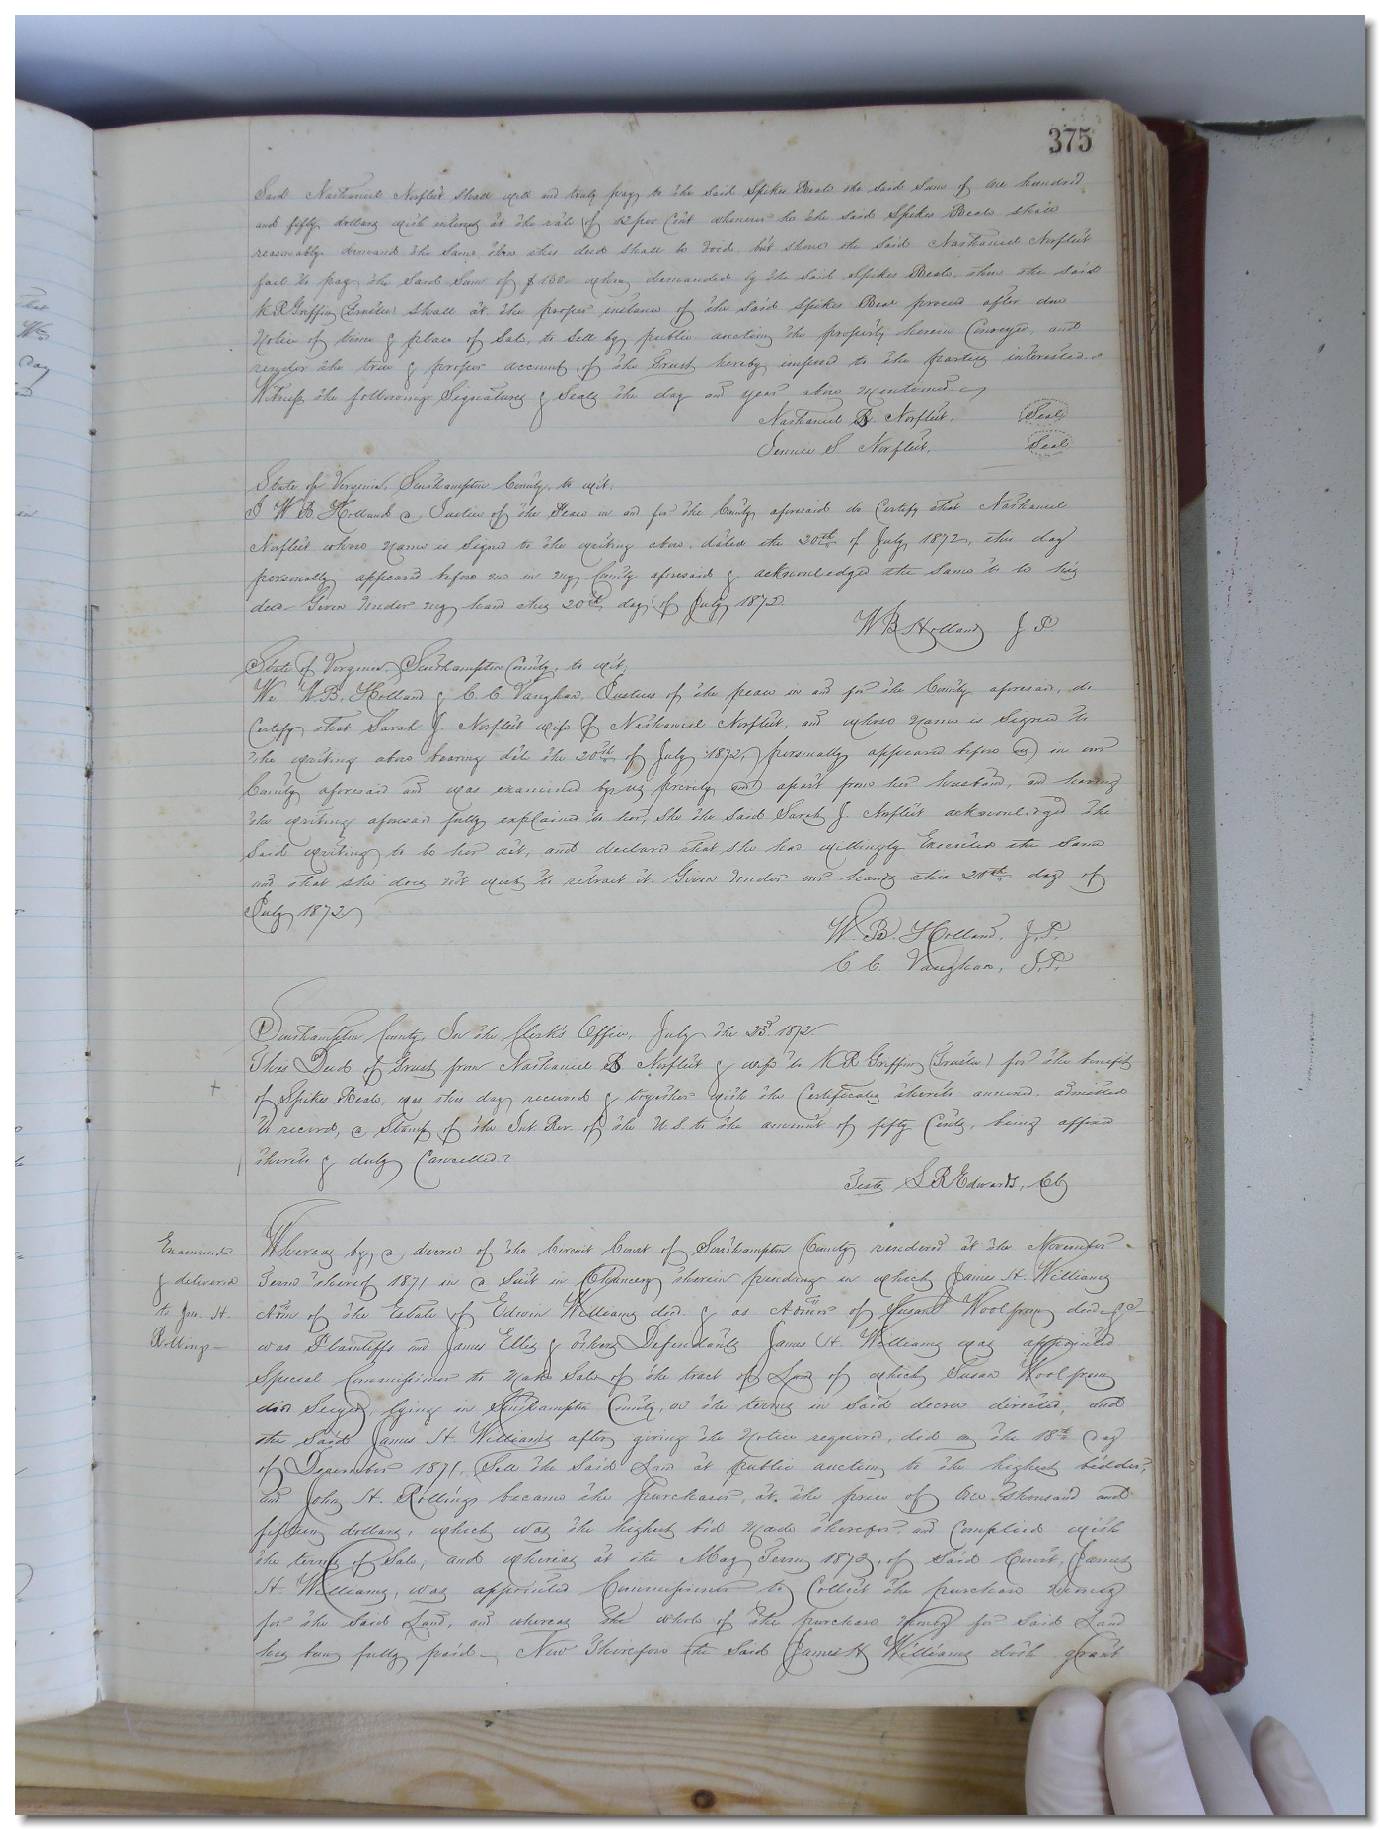 375
Said Nathaniel Norfleet shall well and truly pay to the said Spikes Beale the said Sum of one hundred
and fifty dollars with interest at the rate of 12 per Cent whenever he the said Spikes Beale shall
reasonably demand the same, then this deed shall be void, but should the said Nathaniel Norfleet
fail to pay the said Sum of $150. when demanded by the said Spikes Beale, then the said
K R Griffin (Trustee) shall at the proper instance of the said Spikes Beal proceed after due
Notice of time & place of Sale, to Sell by public auction the property herein Conveyed, and
render the true & proper account of the Trust hereby imposed to the parties interested.
Witness the following Signatures & Seals the day and year above mentioned
Nathaniel B. Norfleet. Seal
Jennie S Norfleet. Seal
State of Virginia, Southampton County, to wit.
I W B. Holland a Justice of the Peace in and for the County aforesaid do Certify that Nathaniel
Norfleet whose name is Signed to the writing above, dated the 20th of July 1872, this day
personally appeared before me in my County aforesaid & acknowledged the same to be his
deed Given Under my hand this 20th day of July 1872
W B Holland J P
State of Virginia, Southampton County, to wit,
We W.B. Holland & C. C. Vaughan, Justices of the peace in and for the County aforesaid, do
Certify that Sarah J. Norfleet wife of Nathaniel Norfleet, and whose name is Signed to
the writing above bearing date the 20th of July 1872, personally appeared before us in our
County aforesaid and was examined by us privily and apart from her husband, and having
the writing aforesaid fully explained to her, She the said Sarah J. Norfleet acknowledged the
Said writing to be her act, and declared that she had willingly Executed the Same
and that she does not wish to retract it. Given Under our hands this 20th day of
July 1872
W. B. Holland, J.P.
C. C. Vaughan, J.P.
Southampton County, In the Clerk's Office, July the 23d 1872.
This Deed of Trust from Nathaniel B Norfleet & wife to K R Griffin (Trustee) for the benefit
of Spikes Beale was this day received & together with the Certificates thereto annexed, admitted
to record, a Stamp of the Int. Rev. of the U.S. to the amount of fifty Cents, being affixed
thereto & duly Cancelled.
Teste S. R. Edwards, Clk
Examined
& delivered
to Jno. H.
Rollings
Whereas by a decree of the Circuit Court of Southampton County rendered at the November
Term thereof 1871 in a Suit in Chancery therein pending in which James H. Williams
Admr of the Estate of Edwin Williams decd. & as Admr of Susan Woolfrang decd & c
was Plaintiffs and James Ellis & others Defendants James H. Williams was appointed
Special Commissioner to make Sale of the tract of Land of which Susan Woolfrang
died Seized, lying in Southampton County, on the terms in said decree directed, and
the Said James H. Williams after giving the Notice required, did on the 18th day
of December 1871, Sell the Said Land at public auction to the highest bidder,
and John H. Rollings became the purchaser, at the price of One thousand and
fifteen dollars, which was the highest bid made therefor, and Complied with
the terms of Sale, and whereas at the May Term 1872, of Said Court, James
H. Williams, was appointed Commissioner to Collect the purchase money
for the said Land, and whereas the whole of the purchase money for Said Land
has been fully paid Now Therefore the Said James H Williams doth grant